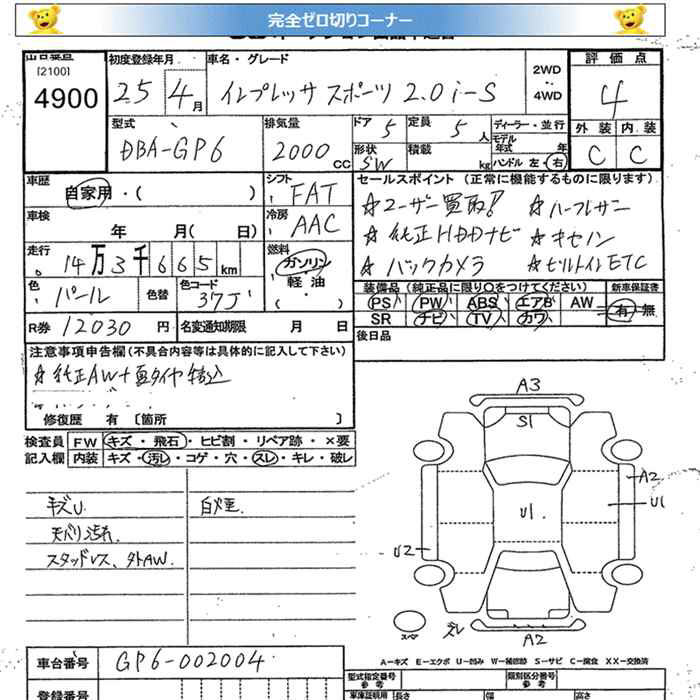 完全ゼロ切りコーナー
出品番号 初度登録年月 車名・グレード 評価点
[2100]
4900 25 4月 インプレッサ スポーツ 2.0i-S 2WD ・・ 4WD 4
外装 内装
C C
型式 排気量 ドア 5 定員 5人 ディーラー・並行
モデル年式 年
DBA-GP6 2000cc 形状 SW 積載 kg ハンドル 左・右
車歴 自家用・( ) シフト FAT
セールスポイント(正常に機能するものに限ります)
車検 年 月( 日) 冷房 AAC
☆ユーザー買取! ☆ハーフレザー
☆純正HDDナビ ☆キセノン
☆バックカメラ ☆ビルトインETC
走行 14万3千665km 燃料 ガソリン・軽油・( )
色 パール 色替 色コード 37J
装備品(純正品に限り○をつけてください) 新車保証書
PS PW ABS エアB AW 有・無
SR ナビ TV カワ
R券 12030円 名変通知期限 月 日
後日品
注意事項申告欄(不具合内容等は具体的に記入して下さい)
☆純正AW+夏タイヤ積込
修復歴 有 〔箇所 〕
検査員記入欄 FW キズ・飛石・ヒビ割・リペア跡・×要
内装 キズ・汚レ・コゲ・穴・スレ・キレ・破レ
キズU. 白ボケ
天バリ汚れ.
スタッドレス、外AW.
A3
S1
A2
U1
U1
U2
スペア
ズレ
A2
A－キズ E－エクボ U－凹み W－補修跡 S－サビ C－腐食 XX－交換済
車台番号 GP6-002004
登録番号
型式指定番号 参考 類別区分番号 参考
車庫証明用 長さ 幅 高さ